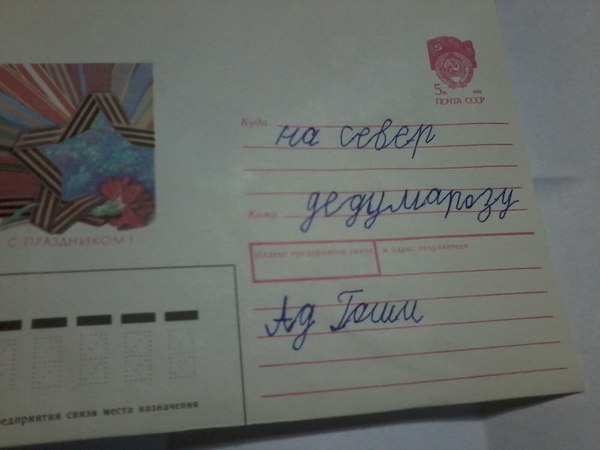 5к
ПОЧТА СССР
С ПРАЗДНИКОМ!
Куда на север
Кому дедумарозу
Индекс предприятия связи и адрес отправителя
Ад Гоши
редприятия связи места назначения